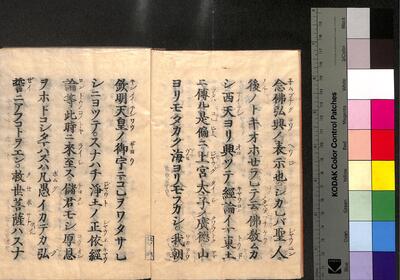 念佛弘興ノ表示也シカレバ聖人
後ノトキオホセラレテ云佛教ムカ
シ西天ヨリ興ツテ經論イマ東土
ニ傳ル是偏ニ上宮太子ノ廣德山
ヨリモタカク海ヨリモフカシ我朝
欽明天皇ノ御宇ニコレヲワタサレ
シニヨツテスナハチ淨土ノ正依經
論等此時ニ來至ス儲君モシ厚恩
ヲホドコシタマハズハ凡愚イカデカ弘
誓ニアフコトヲエン救世菩薩ハスナ
KODAK Color Control Patches
Black
3/Color
White
Magenta
Red
Yellow
Green
Cyan
Blue